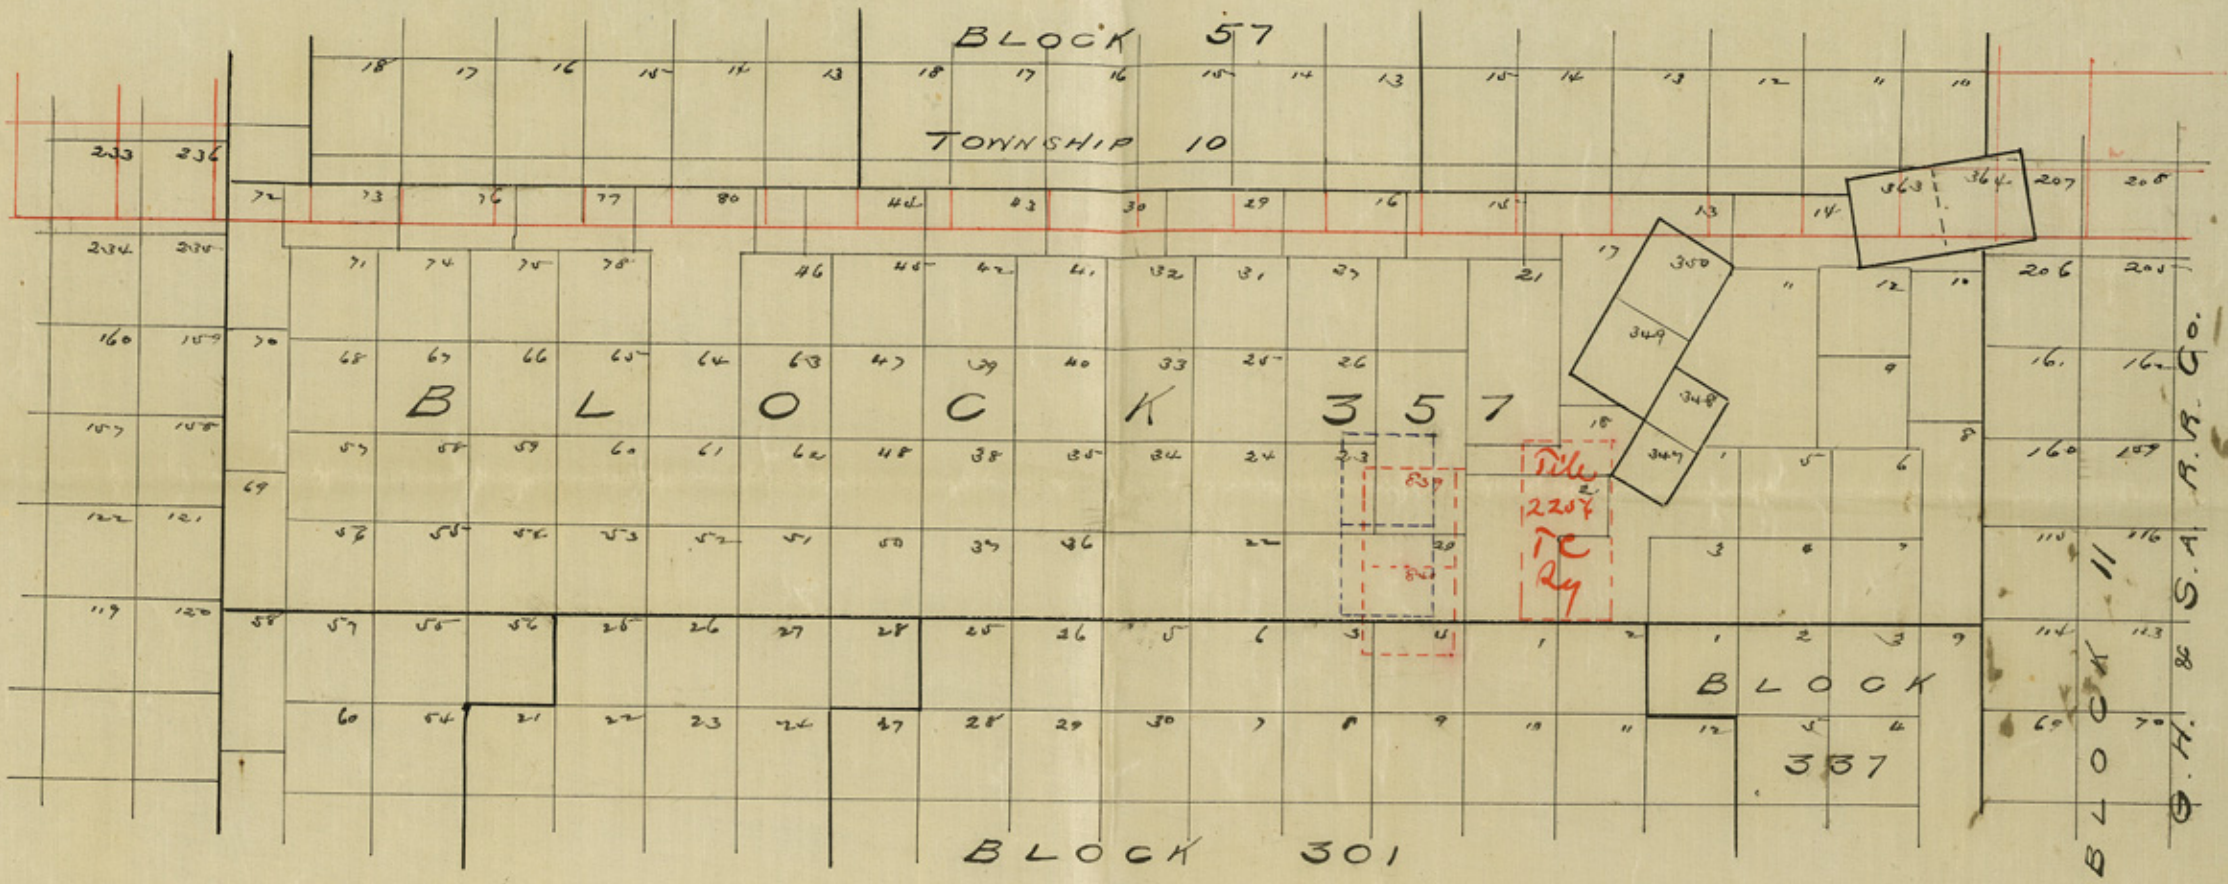 BLOCK 57
18 17 16 15 14 13 18 17 16 15 14 13 15 14 13 12 11 10
TOWNSHIP 10
233 236
363 364 207 208
72 73 76 77 80 44 43 30 29 16 15 13 14
234 235
71 74 75 78 46 45 42 41 32 31 27 21 17 350 11 12 10 206 205
160 159 70
349
68 67 66 65 64 63 47 39 40 33 25 26 9 161 162
BLOCK 357
348
157 158
18
8
57 58 59 60 61 62 48 38 35 34 24 23 347 1 5 6 160 159
69
839
Tile
2
2254
122 121
56 55 54 53 52 51 50 37 36 22 20 3 4 7 115 116
TC
Ry
840
119 120
58 57 55 56 25 26 27 28 25 26 5 6 3 4 1 2 1 2 3 9 114 113
BLOCK
60 54 21 22 23 24 27 28 29 30 7 8 9 10 11 12 5 4 69 70
337
BLOCK 301
BLOCK 11
G.H. & S.A. R.R. Co.